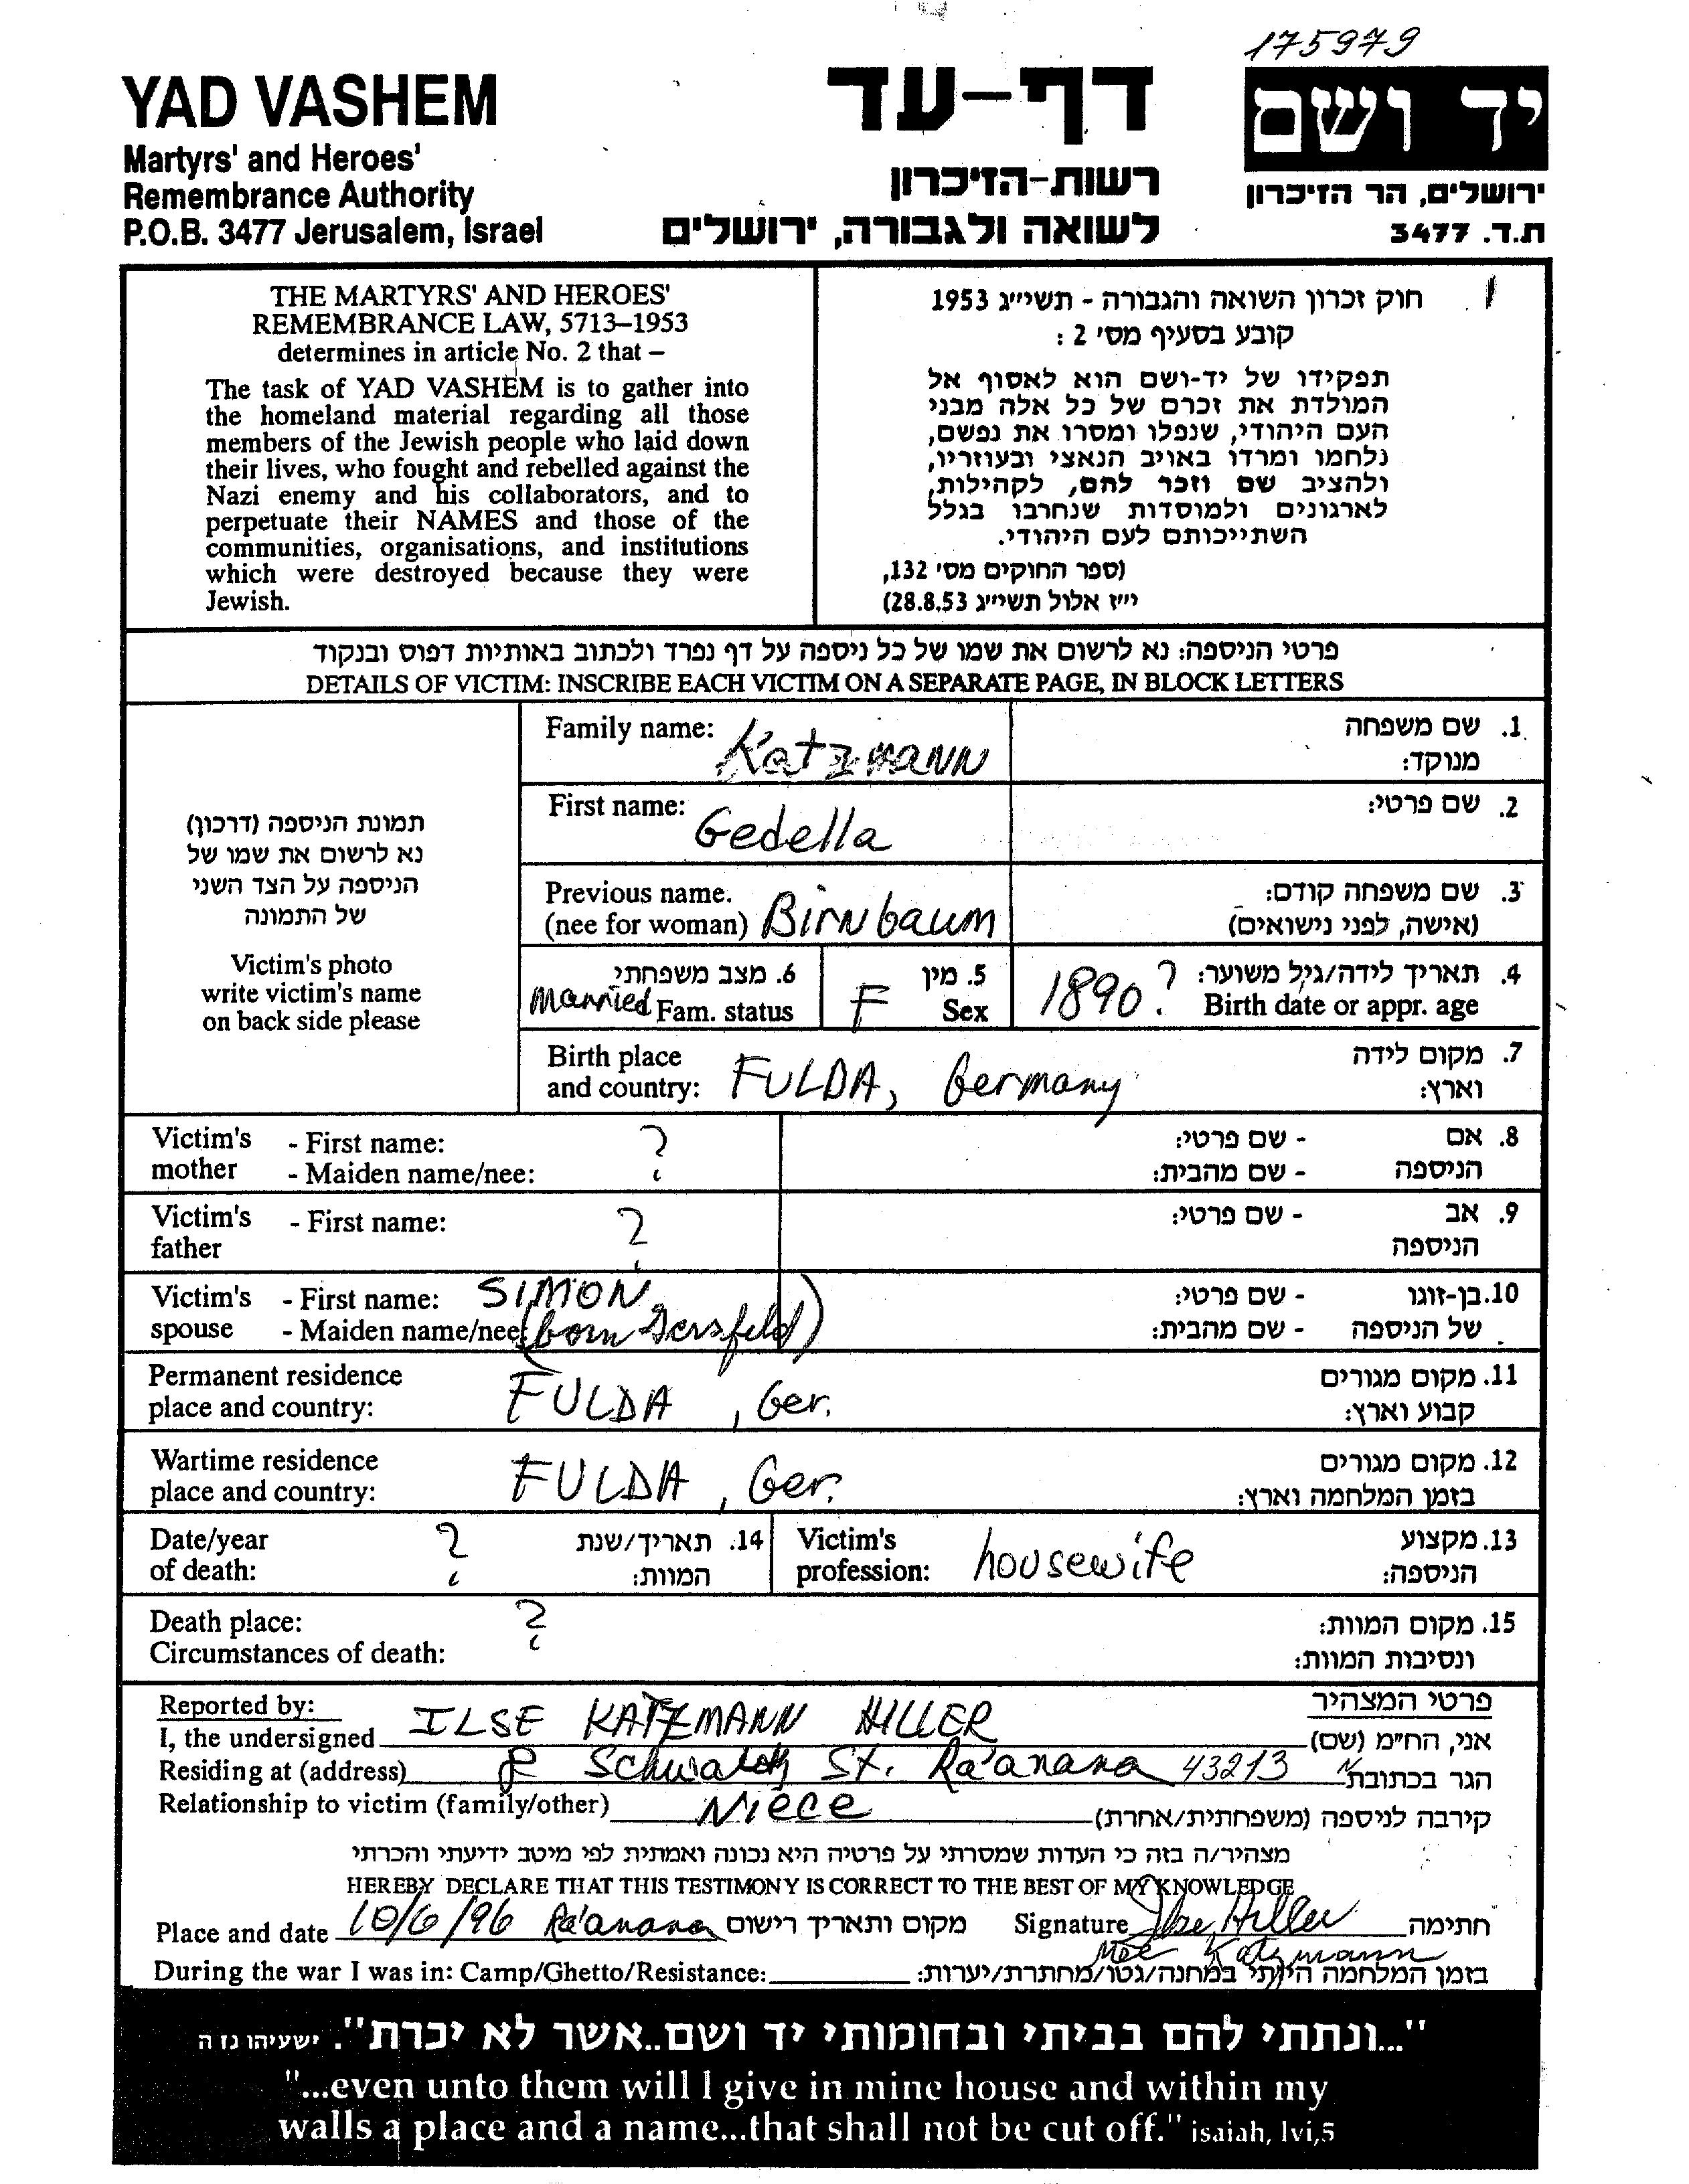 175979
YAD VASHEM
Martyrs' and Heroes'
Remembrance Authority
P.O.B. 3477 Jerusalem, Israel
דף-עד
רשות-הזיכרון
לשואה ולגבורה, ירושלים
יד ושם
ירושלים, הר הזיכרון
ת.ד. 3477
THE MARTYRS' AND HEROES'
REMEMBRANCE LAW, 5713–1953
determines in article No. 2 that –
The task of YAD VASHEM is to gather into
the homeland material regarding all those
members of the Jewish people who laid down
their lives, who fought and rebelled against the
Nazi enemy and his collaborators, and to
perpetuate their NAMES and those of the
communities, organisations, and institutions
which were destroyed because they were
Jewish.
חוק זכרון השואה והגבורה - תשי״ג 1953
קובע בסעיף מס' 2 :
תפקידו של יד-ושם הוא לאסוף אל
המולדת את זכרם של כל אלה מבני
העם היהודי, שנפלו ומסרו את נפשם,
נלחמו ומרדו באויב הנאצי ובעוזריו,
ולהציב שם וזכר להם, לקהילות,
לארגונים ולמוסדות שנחרבו בגלל
השתייכותם לעם היהודי.
(ספר החוקים מס' 132,
י״ז אלול תשי״ג 28.8.53)
פרטי הניספה: נא לרשום את שמו של כל ניספה על דף נפרד ולכתוב באותיות דפוס ובנקוד
DETAILS OF VICTIM: INSCRIBE EACH VICTIM ON A SEPARATE PAGE, IN BLOCK LETTERS
תמונת הניספה (דרכון)
נא לרשום את שמו של
הניספה על הצד השני
של התמונה
Victim's photo
write victim's name
on back side please
Family name: Katzmann 1. שם משפחה
מנוקד:
First name: Gedella 2. שם פרטי:
Previous name. 3. שם משפחה קודם:
(nee for woman) Birnbaum (אישה, לפני נישואים)
6. מצב משפחתי 5. מין 4. תאריך לידה/גיל משוער:
married Fam. status F Sex 1890? Birth date or appr. age
Birth place 7. מקום לידה
and country: FULDA, Germany וארץ:
Victim's - First name: ? - שם פרטי: 8. אם
mother - Maiden name/nee: - שם מהבית: הניספה
Victim's - First name: ? - שם פרטי: 9. אב
father הניספה
Victim's - First name: SIMON - שם פרטי: 10. בן-זוגו
spouse - Maiden name/nee: (born Gersfeld) - שם מהבית: של הניספה
Permanent residence 11. מקום מגורים
place and country: FULDA, Ger. קבוע וארץ:
Wartime residence 12. מקום מגורים
place and country: FULDA, Ger. בזמן המלחמה וארץ:
Date/year ? 14. תאריך/שנת Victim's 13. מקצוע
of death: המוות: profession: housewife הניספה:
Death place: ? 15. מקום המוות:
Circumstances of death: ונסיבות המוות:
Reported by: פרטי המצהיר
I, the undersigned ILSE KATZMANN HILLER אני, הח״מ (שם)
Residing at (address) 8 Schwartz St. Ra'anana 43213 הגר בכתובת
Relationship to victim (family/other) Niece קירבה לניספה (משפחתית/אחרת)
מצהיר/ה בזה כי העדות שמסרתי על פרטיה היא נכונה ואמתית לפי מיטב ידיעתי והכרתי
HEREBY DECLARE THAT THIS TESTIMONY IS CORRECT TO THE BEST OF MY KNOWLEDGE
Place and date 10/6/96 Ra'anana מקום ותאריך רישום Signature Ilse Hiller חתימה
nee Katzmann
During the war I was in: Camp/Ghetto/Resistance: בזמן המלחמה הייתי במחנה/גטו/מחתרת/יערות:
"...ונתתי להם בביתי ובחומותי יד ושם..אשר לא יכרת". ישעיהו נו ה
"...even unto them will I give in mine house and within my
walls a place and a name...that shall not be cut off." isaiah, lvi,5